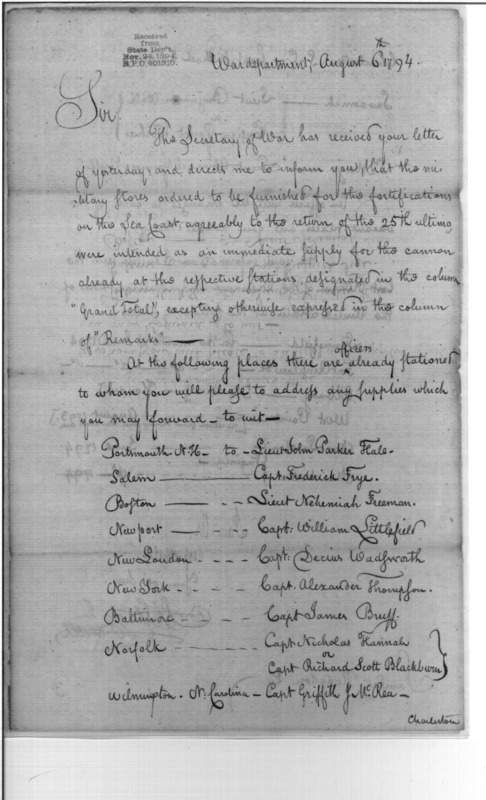 Received
from
State Dep't.
Nov. 24, 1894
R.P.O. 401810.
War department, August 6th 1794.
Sir
The Secretary of War has received your letter
of yesterday and directs me to inform you, that the mi-
litary stores ordered to be furnished for the fortifications
on the Sea Coast agreeably to the return of the 25th ultimo
were intended as an immediate supply for the cannon
already at the respective stations, designated in the column
"Grand Total", excepting otherwise expressed in the column
of "Remarks"—
At the following places there are officers already stationed
to whom you will please to address any supplies which
you may forward — to wit —
Portsmouth N.H — to — Lieut John Parker Hale.
Salem — Capt. Frederick Frye.
Boston — Lieut Nehemiah Freeman.
Newport — Capt. William Littlefield
New London - - - Capt. Decius Wadsworth
New York - - - Capt. Alexander Thompson.
Baltimore - - - Capt James Bruff.
Norfolk - - - Capt. Nicholas Hannah
or
Capt Richard Scott Blackburn
Wilmington. N. Carolina — Capt Griffith J McRea —
Charleston